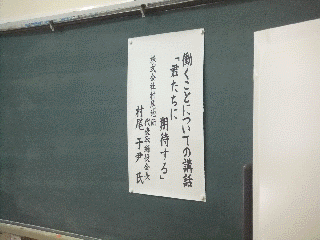 働くことについての講話
「君たちに
期待する」
株式会社村尾技研
代表取締役会長
村尾于尹氏